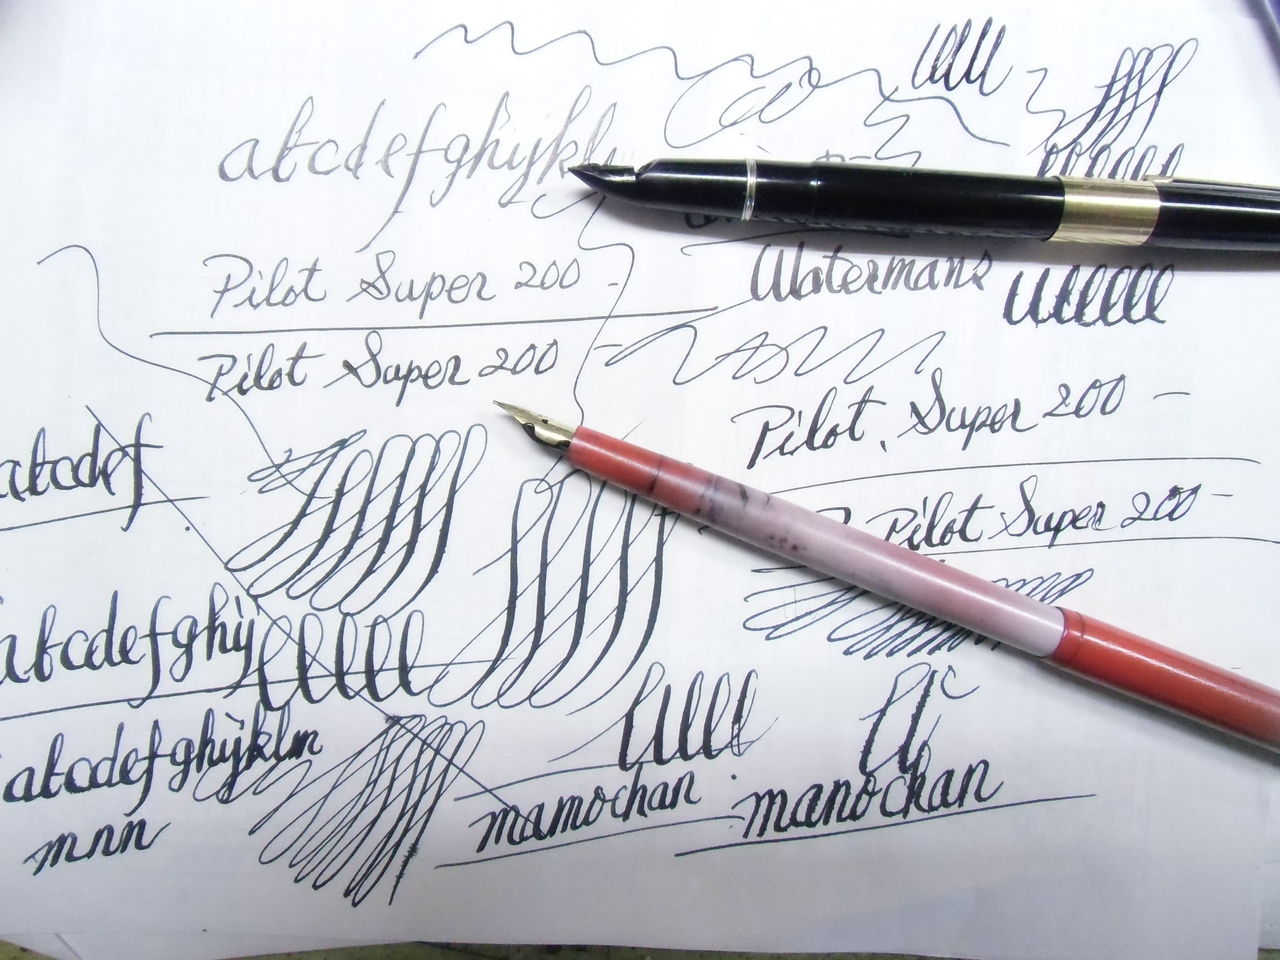 abcdefghijkl
Pilot Super 200 -
Watermans
Pilot Super 200 -
Pilot, Super 200 -
abcdef
Pilot Super 200 -
abcdefghij
abcdefghijklm
mamochan
manochan
mnn